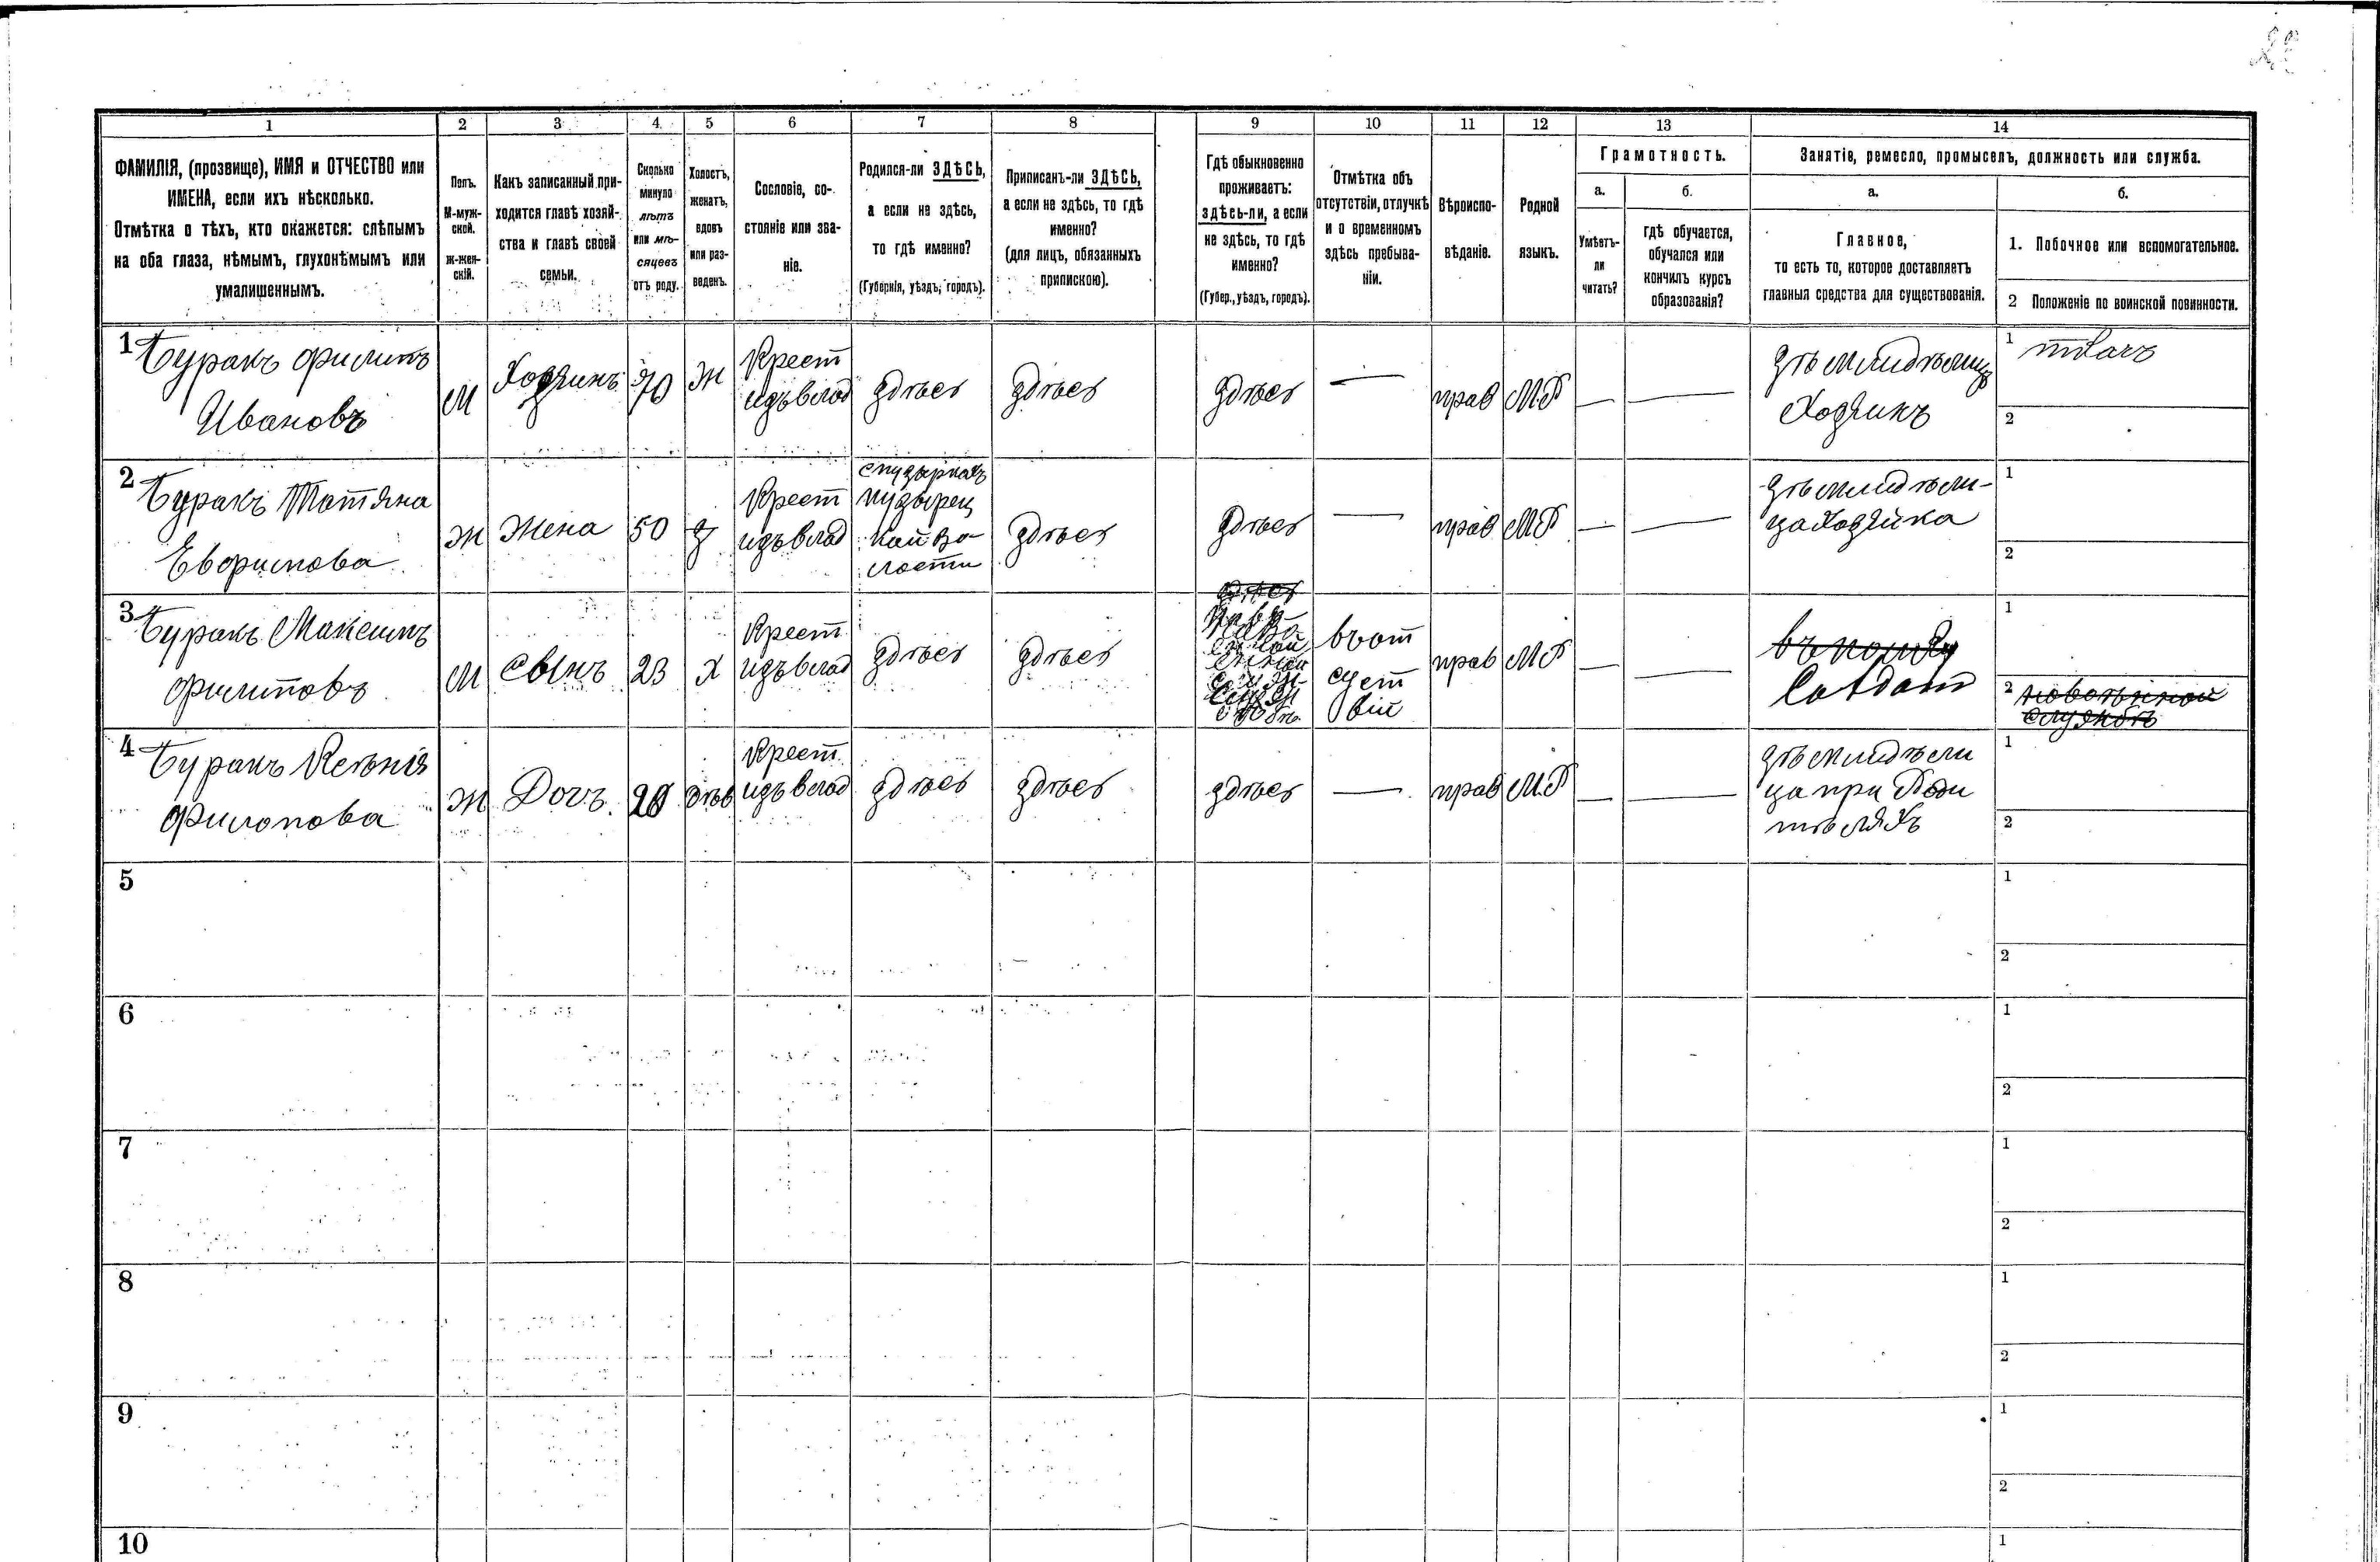 1 2 3 4 5 6 7 8 9 10 11 12 13 14
ФАМИЛІЯ, (прозвище), ИМЯ и ОТЧЕСТВО или
ИМЕНА, если ихъ нѣсколько.
Отмѣтка о тѣхъ, кто окажется: слѣпымъ
на оба глаза, нѣмымъ, глухонѣмымъ или
умалишеннымъ.
Полъ.
М-муж-
ской.
ж-жен-
скій.
Какъ записанный при-
ходится главѣ хозяй-
ства и главѣ своей
семьи.
Сколько
минуло
лѣтъ
или мѣ-
сяцевъ
отъ роду.
Холостъ,
женатъ,
вдовъ
или раз-
веденъ.
Сословіе, со-
стояніе или зва-
ніе.
Родился-ли ЗДѢСЬ,
а если не здѣсь,
то гдѣ именно?
(Губернія, уѣздъ, городъ).
Приписанъ-ли ЗДѢСЬ,
а если не здѣсь, то гдѣ
именно?
(для лицъ, обязанныхъ
припискою).
Гдѣ обыкновенно
проживаетъ:
здѣсь-ли, а если
не здѣсь, то гдѣ
именно?
(Губер., уѣздъ, городъ).
Отмѣтка объ
отсутствіи, отлучкѣ
и о временномъ
здѣсь пребыва-
ніи.
Вѣроиспо-
вѣданіе.
Родной
языкъ.
Грамотность.
а.
Умѣетъ-
ли
читать?
б.
гдѣ обучается,
обучался или
кончилъ курсъ
образованія?
Занятіе, ремесло, промыселъ, должность или служба.
а.
Главное,
то есть то, которое доставляетъ
главныя средства для существованія.
б.
1. Побочное или вспомогательное.
2 Положеніе по воинской повинности.
1 Буракъ Филипъ
Ивановъ
М
Хозяинъ
70
Ж
Крест
изъ влад
здѣсь
здѣсь
здѣсь
—
прав
М.Р
—
—
Хозяинъ
1 ткачъ
2
2 Буракъ Татяна
Ефимова
Ж
Жена
50
З
Крест
изъ влад
пузырец
кой во-
лости
здѣсь
здѣсь
—
прав
МР
—
—
земледѣли-
ца Хозяйка
1
2
3 Буракъ Максимъ
Филиповъ
М
Сынъ
23
Х
Крест
изъ влад
здѣсь
здѣсь
здѣсь
вьот
сует
вiи
прав
МР
—
—
Солдат
1
2
службѣ
4 Буракъ Ксенія
Филопова
Ж
Дочъ.
20
дѣв
Крест
изъ влад
здѣсь
здѣсь
здѣсь
—
прав
М.Р
—
—
земледѣли
ца при Роди
тѣляхъ
1
2
5
1
2
6
1
2
7
1
2
8
1
2
9
1
2
10
1